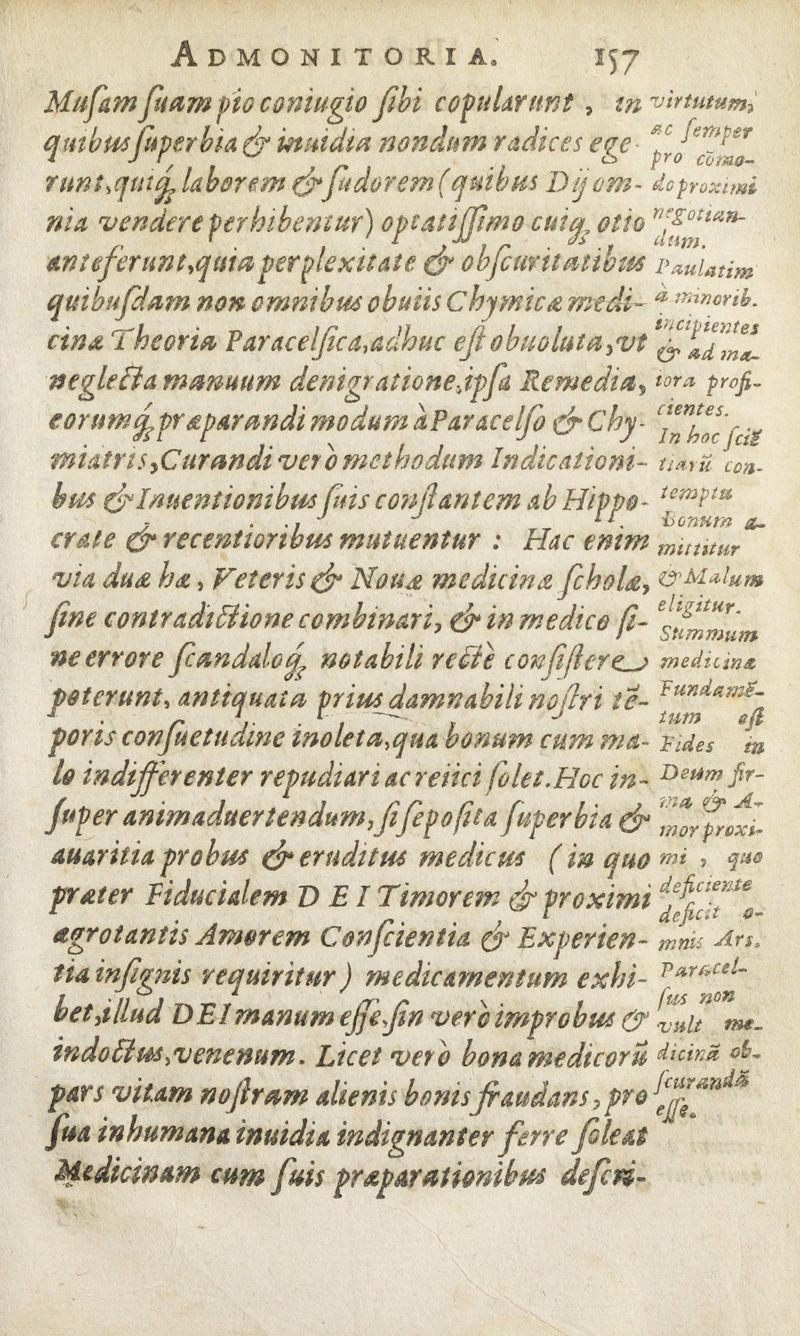 ADMONITORIA. 157
Muſam ſuam pio coniugio ſibi copularunt, in
quibus ſuperbia & inuidia nondum radices ege-
runt, quiq́; laborem & ſudorem (quibus Dij om-
nia vendere perhibentur) optatiſſimo cuiq; otio
anteferunt, quia perplexitate & obſcuritatibus
quibuſdam non omnibus obuiis Chymicæ medi-
cinæ Theoria Paracelſica, adhuc eſt obuoluta, vt
neglecta manuum denigratione, ipſa Remedia,
eorumq́; præparandi modum à Paracelſo & Chy-
miatris, Curandi verò methodum Indicationi-
bus & Inuentionibus ſuis conſtantem ab Hippo-
crate & recentioribus mutuentur : Hac enim
via duæ hæ, Veteris & Nouæ medicinæ ſcholæ,
ſine contradictione combinari, & in medico ſi-
ne errore ſcandaloq́; notabili rectè conſiſtere
poterunt, antiquata prius damnabili noſtri tē-
poris conſuetudine inoleta, qua bonum cum ma-
lo indifferenter repudiari ac reiici ſolet. Hoc in-
ſuper animaduertendum, ſi ſepoſita ſuperbia &
auaritia probus & eruditus medicus (in quo
præter Fiducialem DEI Timorem & proximi
ægrotantis Amorem Conſcientia & Experien-
tia inſignis requiritur) medicamentum exhi-
bet, illud DEI manum eſſe, ſin verò improbus &
indoctus, venenum. Licet verò bona medicorū
pars vitam noſtram alienis bonis fraudans, pro
ſua inhumana inuidia indignanter ferre ſoleat
Medicinam cum ſuis præparationibus deſcri-
virtutum,
ac ſemper
pro cōmo-
do proximi
negotian-
dum.
Paulatim
à minorib.
incipientes
& ad ma-
iora profi-
cientes.
In hoc ſciē
tiarū con-
temptu
bonum a-
mittitur
& Malum
eligitur.
Summum
medicinæ
Fundamē-
tum eſt
Fides in
Deum fir-
ma & A-
mor proxi-
mi, quo
deficiente
deficit o-
mnis Ars.
Paracel-
ſus non
vult me-
dicinā ob-
ſcurandā
eſſe.